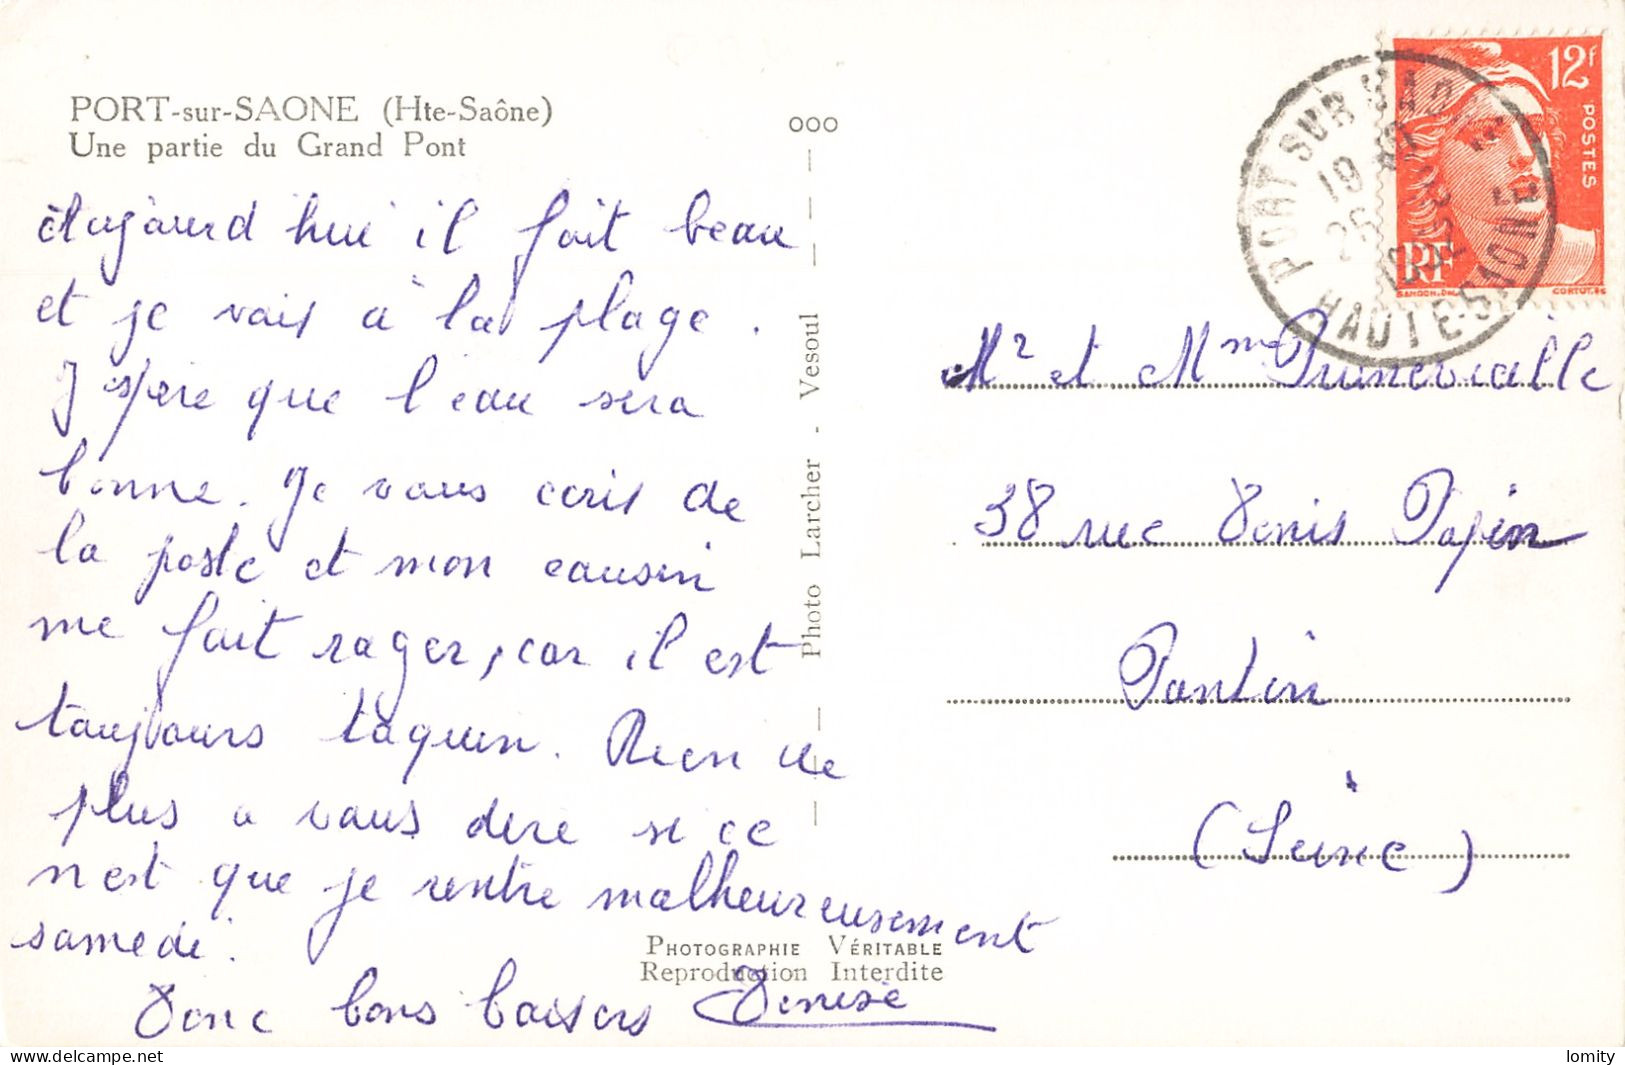 PORT-sur-SAONE (Hte-Saône)
Une partie du Grand Pont
000
Aujourd'hui il fait beau
et je vais à la plage.
J'espère que l'eau sera
bonne. Je vous ecris de
la poste et mon cousin
me fait rager, car il est
toujours taquin. Rien de
plus a vous dire si ce
n'est que je rentre malheureusement
samedi.
Donc bons baisers Denise
Photo Larcher - Vesoul
PHOTOGRAPHIE VÉRITABLE
Reproduction Interdite
12f
POSTES
RF
GANDON.DEL
CORTOT.SC
PORT SUR SAONE
HAUTE-SAONE
Mr et Mm Prunevieille
38 rue Denis Papin
Pantin
(Seine)
delcampe.net
lomity